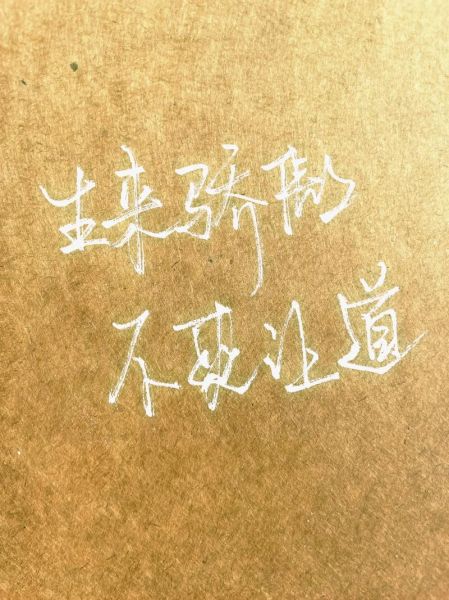 生来骄傲
不让道